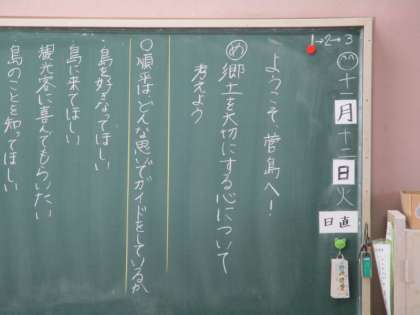 1→2→3
十二月十二日火
日直
ようこそ、菅島へ！
め 郷土を大切にする心について
考えよう
○順平は、どんな思いでガイドをしているか
・島を好きになってほしい
島に来てほしい
観光客に喜んでもらいたい
島のことを知ってほしい